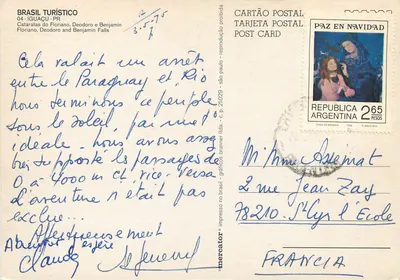 BRASIL TURÍSTICO
04 - IGUAÇU - PR
Cataratas do Floriano, Deodoro e Benjamin
Floriano, Deodoro and Benjamin Falls
3-5-75
CARTÃO POSTAL
TARJETA POSTAL
POST CARD
PAZ EN NAVIDAD
REPUBLICA
ARGENTINA
2,65
PESOS
Cela valait un arrêt
entre le Paraguay et Rio
nous terminons ce périple
sous le soleil, par une t°
idéale. nous avons assez
bien supporté les passages de
0 à 4000 m et vice versa
l'aventure n'était pas
exclue...
Affectueusement
A bientôt j'espère
Claude
mercator
M. Mme
2 rue Jean Zay
78210. St Cyr l'École
FRANCIA